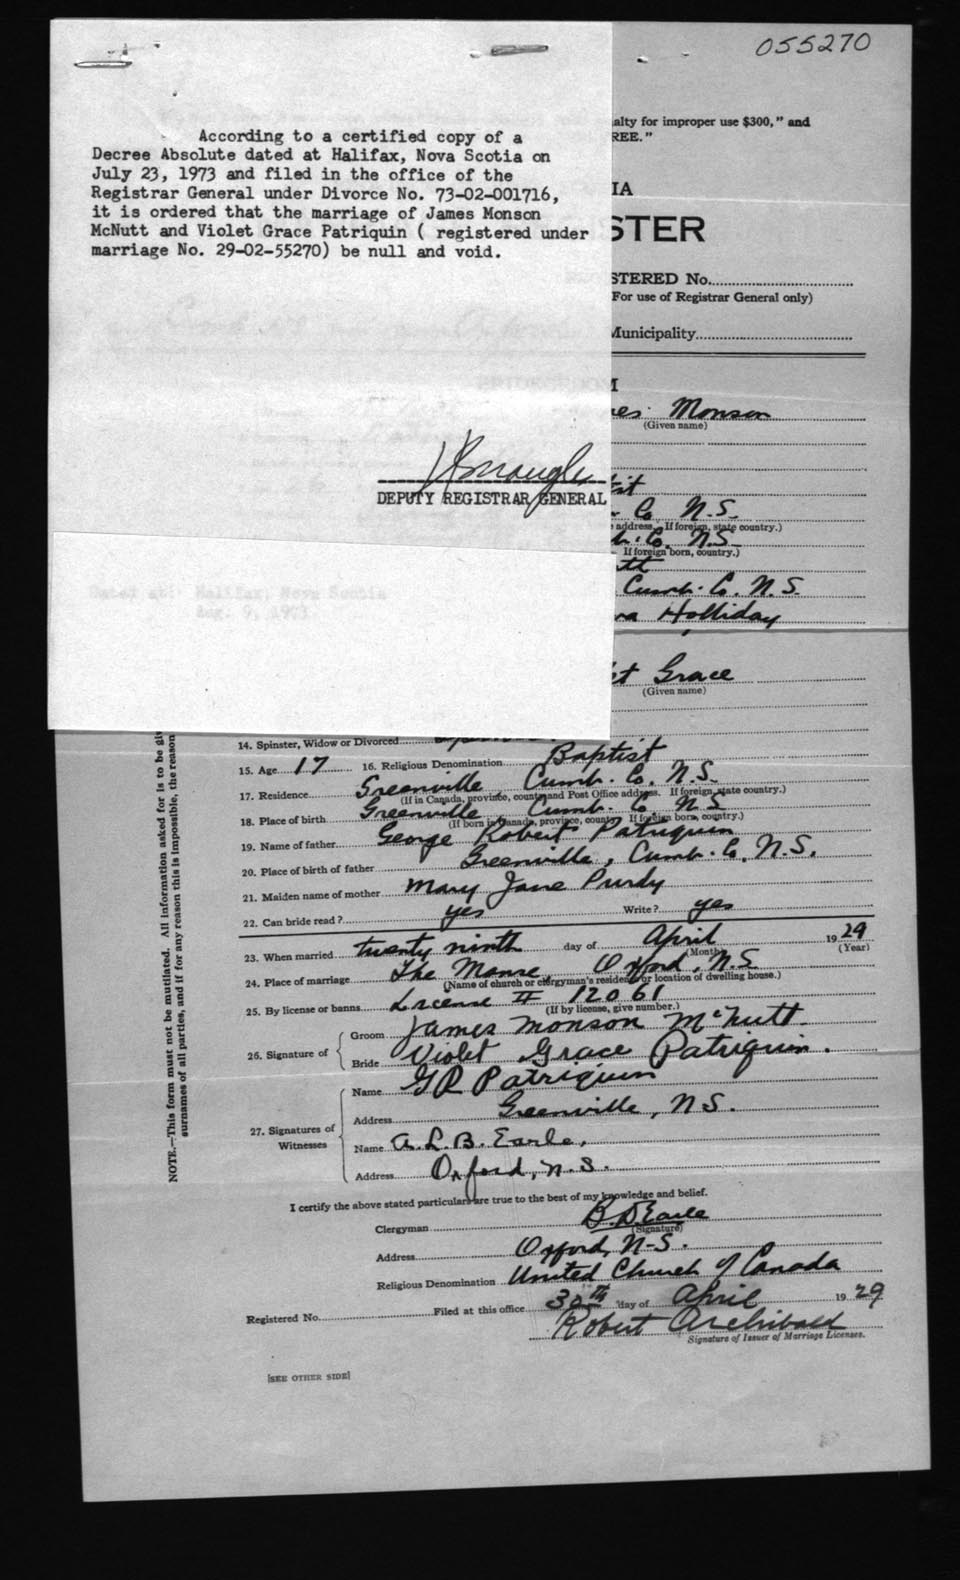 055270
According to a certified copy of a
Decree Absolute dated at Halifax, Nova Scotia on
July 23, 1973 and filed in the office of the
Registrar General under Divorce No. 73-02-001716,
it is ordered that the marriage of James Monson
McNutt and Violet Grace Patriquin ( registered under
marriage No. 29-02-55270) be null and void.
DEPUTY REGISTRAR GENERAL
Dated at: Halifax, Nova Scotia
Aug. 9, 1973
alty for improper use $300," and
REE."
IA
STER
STERED No.
For use of Registrar General only)
Municipality
M
es Monson
(Given name)
Co N.S.
address. If foreign, state country.)
Co. N.S.
If foreign born, country.)
Cumb. Co. N.S.
Holliday
et Grace
(Given name)
14. Spinster, Widow or Divorced
15. Age 17 16. Religious Denomination Baptist
17. Residence Greenville Cumb. Co. N.S.
(If in Canada, province, county and Post Office address. If foreign, state country.)
18. Place of birth Greenville Cumb. Co N.S
(If born in Canada, province, county. If foreign born, country.)
19. Name of father George Robert Patriquin
20. Place of birth of father Greenville, Cumb. Co. N.S.
21. Maiden name of mother Mary Jane Purdy
22. Can bride read? yes Write? yes
23. When married twenty ninth day of April 1929
(Month) (Year)
24. Place of marriage The Manse, Oxford, N.S
(Name of church or clergyman's residence or location of dwelling house.)
25. By license or banns License # 12061
(If by license, give number.)
26. Signature of Groom James Monson McNutt.
Bride Violet Grace Patriquin.
27. Signatures of Witnesses Name G R Patriquin
Address Greenville, N.S.
Name A. L. B. Earle,
Address Oxford, N.S.
I certify the above stated particulars are true to the best of my knowledge and belief.
Clergyman B. D Earle
(Signature)
Address Oxford, N.S.
Religious Denomination United Church of Canada
Registered No. Filed at this office 30th day of April 1929
Robert Archibald
Signature of Issuer of Marriage Licenses.
[SEE OTHER SIDE]
NOTE.—This form must not be mutilated. All information asked for is to be giv
surnames of all parties, and if for any reason this is impossible, the reason